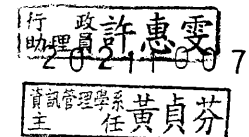 行政
助理員 許惠雯
20211007
資訊管理學系
主任 黃貞芬